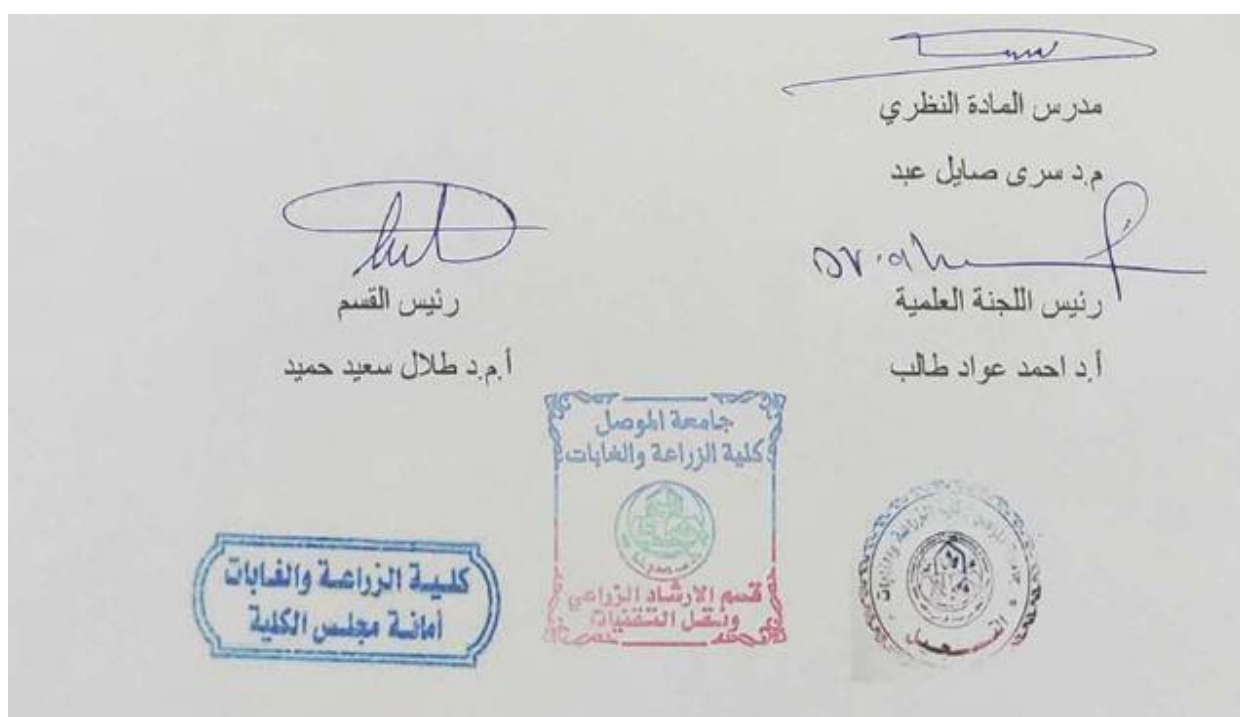 مدرس المادة النظري
م.د سرى صايل عبد
رئيس اللجنة العلمية
أ.د احمد عواد طالب
رئيس القسم
أ.م.د طلال سعيد حميد
جامعة الموصل
كلية الزراعة والغابات
قسم الارشاد الزراعي
ونقل التقنيات
كليـة الزراعـة والغـابات
أمانـة مجلـس الكلية